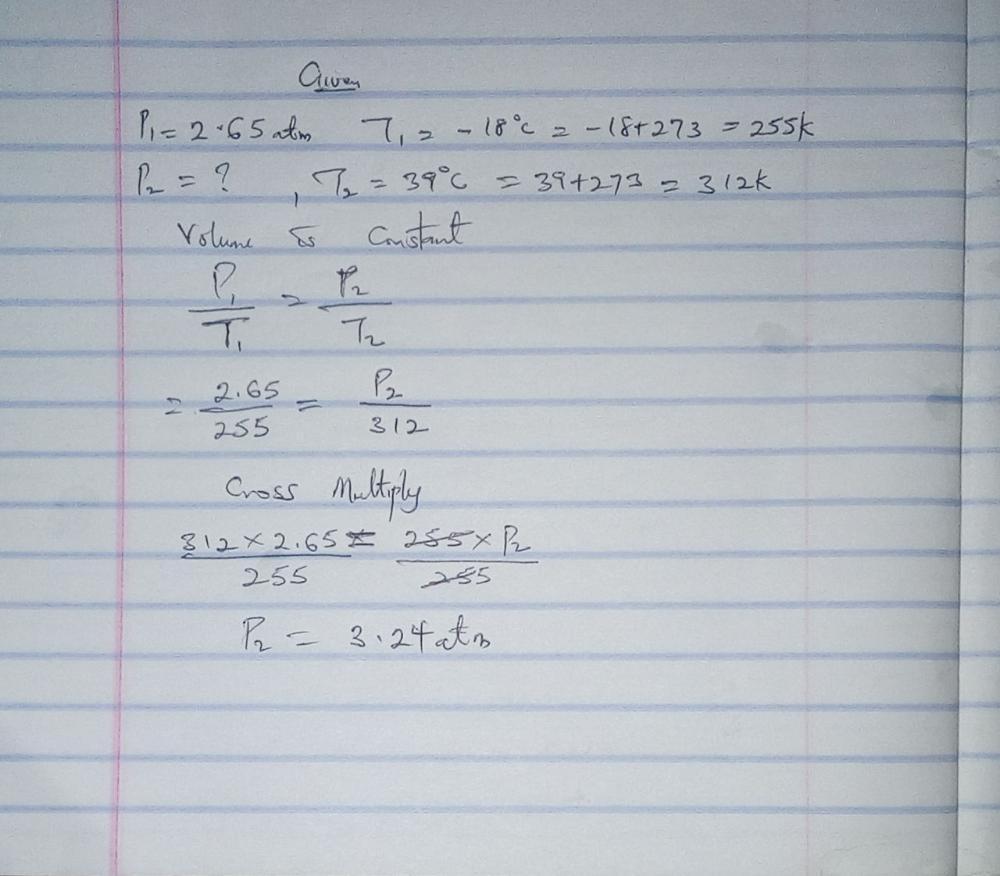 Given
P₁ = 2.65 atm T₁ = -18°C = -18+273 = 255k
P₂ = ? , T₂ = 39°C = 39+273 = 312k
Volume is Constant
P₁/T₁ = P₂/T₂
= 2.65/255 = P₂/312
Cross Multiply
312 × 2.65/255 = 255 × P₂/255
P₂ = 3.24 atm